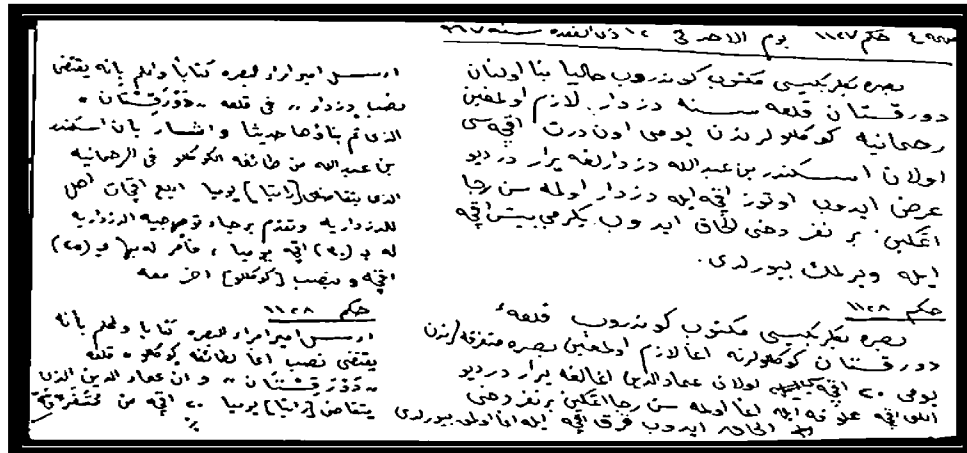 حكم ١١٢٧ يوم الاحد في ١٢ ذى القعده سنه ٩٦٧
بصره بكلربكيسى مكتوب كوندروب حاليا بنا اولنان
دورقستان قلعه سنه دزدار لازم اولمغين
رحمانيه كوكللولرندن يومى اون درت اقچه سى
اولان اسكندر بن عبدالله دزدارلغه يرار در ديو
عرض ايدوب اوتوز اقچه ايله دزدار اولمه سن رجا
اتمكين بر نفر دخى الحاق ايدوب يكرمى بيش اقچه
ايله ويرلمك بيورلدى.
حكم ١١٢٨
بصره بكلربكيسى مكتوب كوندروب قلعهء
دورقستان كوكللولرينه اغا لازم اولمغين بصره متفرقه لرندن
يومى ٢٠ اقچه اولان عمادالدين اغالغه يرار در ديو
اللى اقچه علوفه ايله اغا اولمه سن رجا اتمكين بر نفر دخى
الحاق ايدوب قرق اقچه ايله اغا اولمق بيورلدى
ارسل امير امراء البصره كتابا واعلم بانه يقتضى
نصب دزدار ,, في قلعه ,, دَوْرَقِسْتَان ,,
الذى تم بناؤها حديثا واشار بان اسكندر
بن عبدالله من طائفه الكوكللو في الرحمانيه
الذى يتقاضى [راتبا] يوميا اربع اقچات اهل
للدزداريه وتقدم برجاء توجيه الدزداريه
له بـ (٣٠) اقچه يوميا ، فأمر له بها بـ (٢٥)
اقچه و بنصب [كوكللو] اخر معه
حكم ١١٢٨
ارسل امير امراء البصره كتابا واعلم بأنه
يقتضى نصب اغا لطائفه كوكللو قلعه
,, دَوْرَقِسْتَان ,, وان عماد الدين الذى
يتقاضى [راتبا] يوميا ٢٠ اقچه من متفرقة